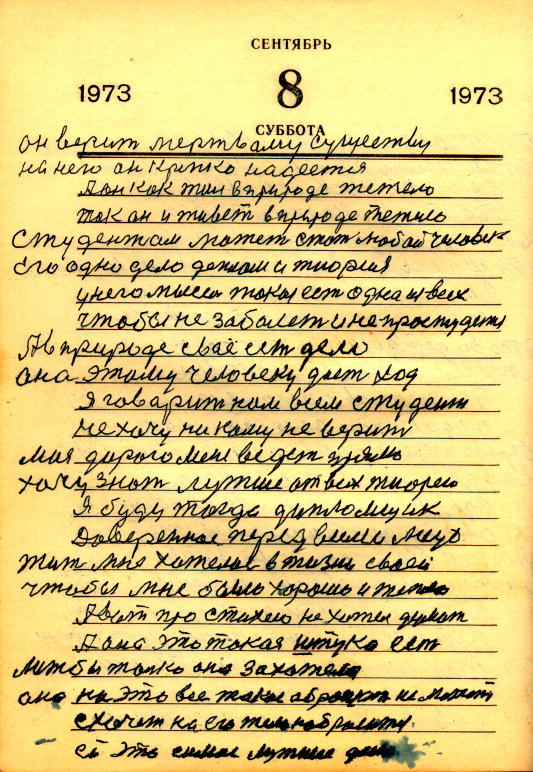 СЕНТЯБРЬ
1973 8 1973
СУББОТА
он верит мертваму существу
на него он крепко надеется
А он как тил в природе тепело
так он и живет в природе тепило
Студентам может стат любой человек
Его одно дело деплом и тиория
у него мысел такая ест одна из всех
чтобы не заболет и не простудит
А в природе сваё ест дело
она этому человеку дает ход
Я говарит нам всем студент
не хочу никому не верит
моя дорога меня ведет прямо
хочу знат лутше от всех тиорею
Я буду тогда дипломщик
Доверенное перед всеми
жит мне хателос в жизни своей
чтобы мне было хорошо и тепло
про стихею не хател думат
А она это такая штука ест
лишбы толко она захотела
она на это все такое не может
схочет на его тело
это самое лутшее дело